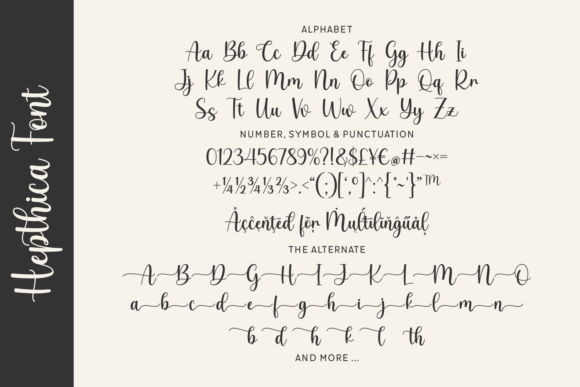 Hepthica Font
ALPHABET
Aa Bb Cc Dd Ee Ff Gg Hh Ii
Jj Kk Ll Mm Nn Oo Pp Qq Rr
Ss Tt Uu Vv Ww Xx Yy Zz
NUMBER, SYMBOL & PUNCTUATION
0123456789%?!&$£¥€@#–~×=
+¼½¾⅓⅔>.<“(;)[‘,’º]^:^{*~'}”™
THE ALTERNATE
A B D G H I J K L M N O
a b c d e f g h i j k l m n
b d h k l th
AND MORE ...